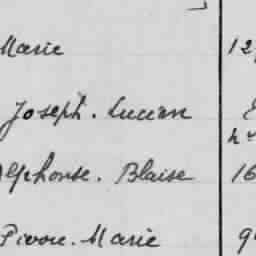 Marie 12
Joseph. Lucien
Alphonse. Blaise 16
Marie 9